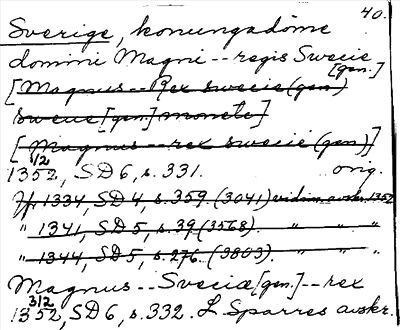 40.
Sverige, konungadöme
domini Magni -- regis Swecie
[gen.]
[Magnus -- Rex swecie (gen)
sweciE [gen] monete]
[Magnus -- rex swecie (gen)]
1/2
1352, SD 6, s. 331. orig.
Jfr 1334, SD 4, s. 359 (3041) vidim. avskr. 1352
" 1341, SD 5, s. 39 (3568). " " "
" 1344, SD 5, s. 276 (3803). " " "
Magnus -- Sveciæ [gen.] -- rex
3/2
1352, SD 6, s. 332. L. Sparres avskr.